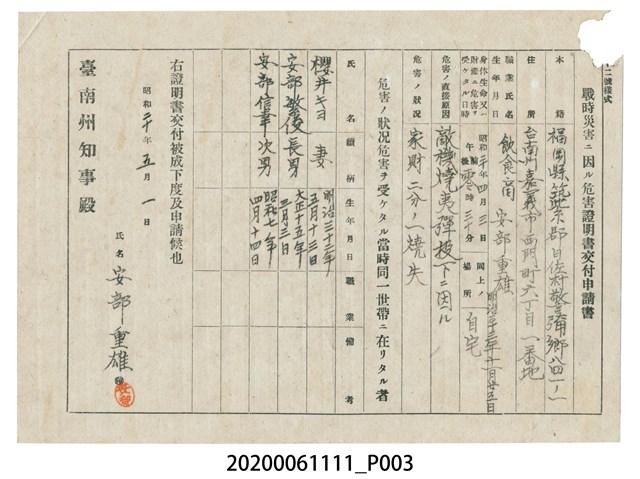 十二號樣式
戰時災害ニ因ル危害證明書交付申請書
本籍 福岡縣筑紫郡日佐村警弥郷
住所 台南州嘉義市西門町六丁目一番地
職業氏名 飲食商 安部重雄
生年月日 明治三十三年十一月廿五日
身体生命又ハ財產ニ危害ヲ受ケタル日時 昭和二十年四月三日 午後零時三十分
同上ノ場所 自宅
危害ノ直接原因 敵機燒夷彈投下ニ因ル
危害ノ狀況 家財二分ノ一燒失
危害ノ狀況危害ヲ受ケタル當時同一世帶ニ在リタル者
氏名 續柄 生年月日 職業 備考
櫻井キヨ 妻 明治三十三年五月十三日
安部 俊 長男 大正十五年三月三日
安部信華 次男 昭和七年四月十四日
右證明書交付被成下度及申請候也
昭和二十年五月一日
氏名 安部重雄
臺南州知事殿
20200061111_P003